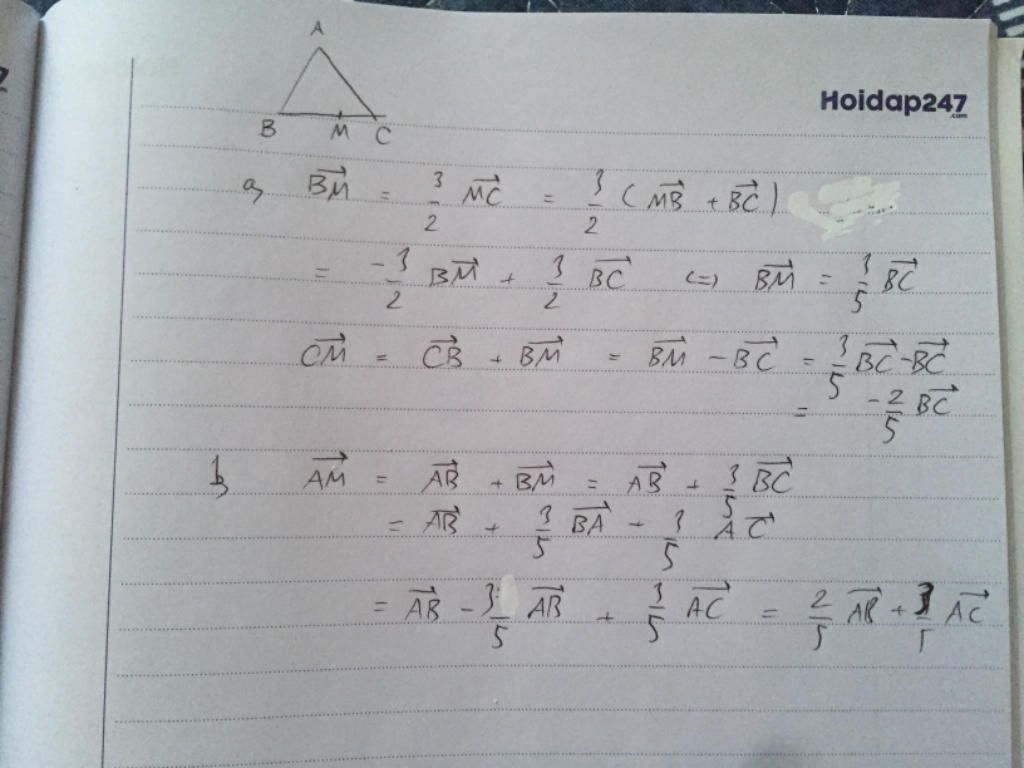 A
Hoidap247
.com
B M C
a, $\overrightarrow{BM} = \frac{3}{2} \overrightarrow{MC} = \frac{3}{2} (\overrightarrow{MB} + \overrightarrow{BC})$
$= \frac{-3}{2} \overrightarrow{BM} + \frac{3}{2} \overrightarrow{BC} \Leftrightarrow \overrightarrow{BM} = \frac{3}{5} \overrightarrow{BC}$
$\overrightarrow{CM} = \overrightarrow{CB} + \overrightarrow{BM} = \overrightarrow{BM} - \overrightarrow{BC} = \frac{3}{5} \overrightarrow{BC} - \overrightarrow{BC}$
$= -\frac{2}{5} \overrightarrow{BC}$
b, $\overrightarrow{AM} = \overrightarrow{AB} + \overrightarrow{BM} = \overrightarrow{AB} + \frac{3}{5} \overrightarrow{BC}$
$= \overrightarrow{AB} + \frac{3}{5} \overrightarrow{BA} + \frac{3}{5} \overrightarrow{AC}$
$= \overrightarrow{AB} - \frac{3}{5} \overrightarrow{AB} + \frac{3}{5} \overrightarrow{AC} = \frac{2}{5} \overrightarrow{AB} + \frac{3}{5} \overrightarrow{AC}$